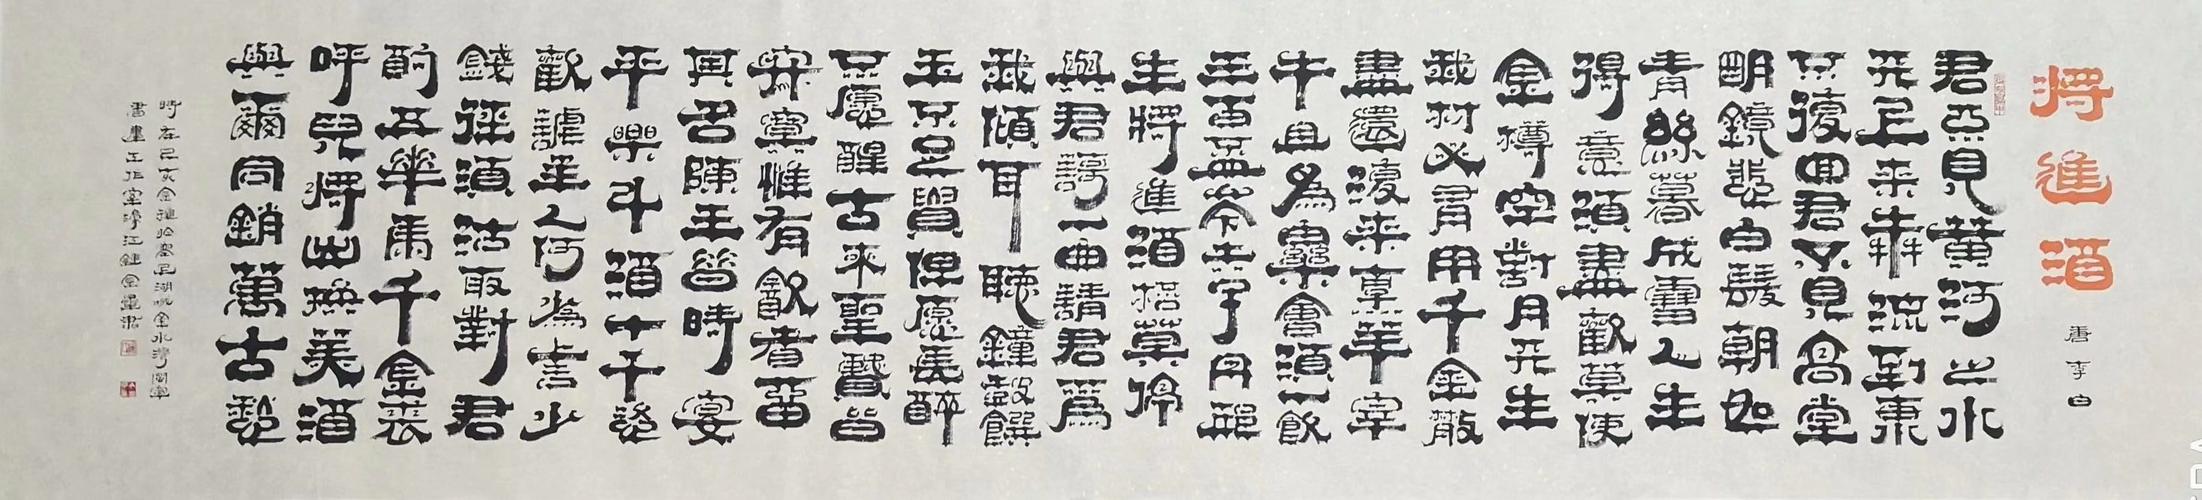 將進酒
唐李白
君不見黃河之水
天上来奔流到東
不復回君不見高堂
明鏡悲白髮朝如
青絲暮成雪人生
得意須盡歡莫使
金樽空對月天生
我材必有用千金散
盡還復来烹羊宰
牛且為樂會須一飲
三百盃岑夫子丹邱
生將進酒杯莫停
與君謌一曲請君為
我傾耳聽鐘鼓饌
玉不足貴但願長醉
不願醒古來聖賢皆
寂寞惟有飲者留
其名陳王昔時宴
平樂斗酒十千恣
歡謔主人何為言少
錢徑須沽取對君
酌五華馬千金裘
呼兒將出換美酒
與爾同銷萬古愁
時在己亥金湖畔金水灣
書畫工作室